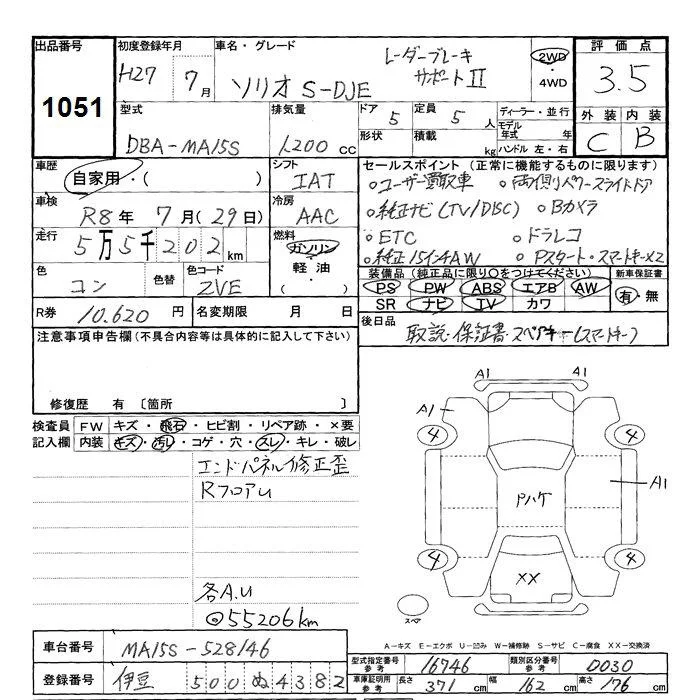 出品番号
1051
初度登録年月
H27 7月
車名・グレード
ソリオ S-DJE
レーダーブレーキ
サポートⅡ
2WD
・4WD
評価点
3.5
外装 内装
C B
型式
DBA-MA15S
排気量
1,200 cc
ドア 5
定員 5 人
形状
積載 kg
ディーラー・並行
モデル
年式 年
ハンドル 左・右
車歴
自家用・( )
シフト
IAT
車検
R8年 7月(29日)
冷房
AAC
走行
5万5千202km
燃料
ガソリン
軽油・
( )
色
コン
色替
色コード
ZVE
R券 10,620 円
名変期限 月 日
セールスポイント(正常に機能するものに限ります)
○ユーザー買取車 ○両側パワースライドドア
○純正ナビ(TV/DISC) ○Bカメラ
○ETC ○ドラレコ
○純正15インチAW ○Pスタート・スマートキー×2
装備品(純正品に限り○をつけてください)
PS PW ABS エアB AW
SR ナビ TV カワ
新車保証書
有・無
後日品
取説・保証書・スペアキー(スマートキー)
注意事項申告欄(不具合内容等は具体的に記入して下さい)
修復歴 有〔箇所 〕
検査員
記入欄
FW キズ・飛石・ヒビ割・リペア跡・×要
内装 キズ・汚レ・コゲ・穴・スレ・キレ・破レ
エンドパネル修正歪
Rフロアu
各A.U
◎55206km
A1 41
A1
4 4
A1
Pハゲ
4 4
XX
スペア
A-キズ E-エクボ U-凹み W-補修跡 S-サビ C-腐食 XX-交換済
車台番号 MA15S-528146
登録番号 伊豆 500 ぬ 4382
型式指定番号
参考
16746
類別区分番号
参考
D030
車庫証明用
参考
長さ 371 cm 幅 162 cm 高さ 176 cm